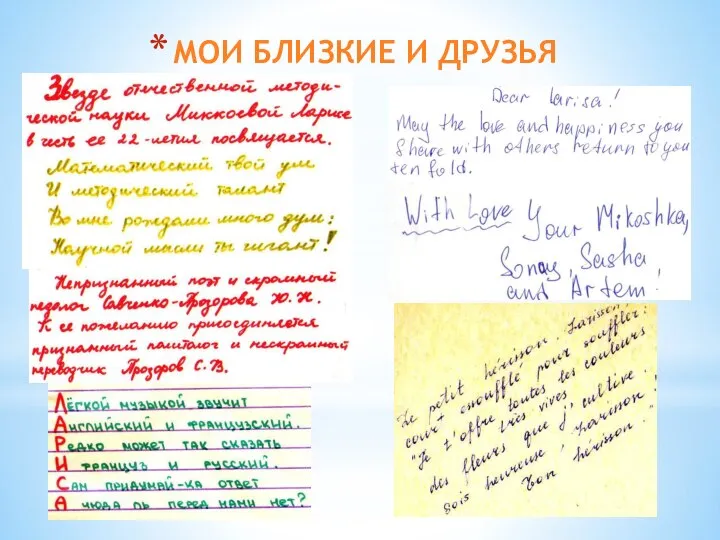 * МОИ БЛИЗКИЕ И ДРУЗЬЯ
Звезде отечественной методи-
ческой науки Миккоевой Ларисе
в честь ее 22-летия посвящается.
Математический твой ум
И методический талант
Во мне рождали много дум:
Научной мысли ты гигант!
Непризнанный поэт и скромный
педолог Савченко-Прозорова Ю.Н.
К ее пожеланию присоединяется
признанный паштолог и нескромный
переводчик Прозоров С.В.
Лёгкой музыкой звучит
Английский и французский.
Редко может так сказать
И француз и русский.
Сам придумай-ка ответ
А чюда ль перед нами нет?
Dear Larisa!
May the love and happiness you
Share with others return to you
ten fold.
With Love Your Mikoshka,
Sonay, Sasha
and Artem!
Le petit hérisson, Larisson,
court essoufflé pour souffler:
"Je t'offre toutes les couleurs
très vives
des fleurs que j'cultive.
Sois heureuse, Larisson!
Ton hérisson."